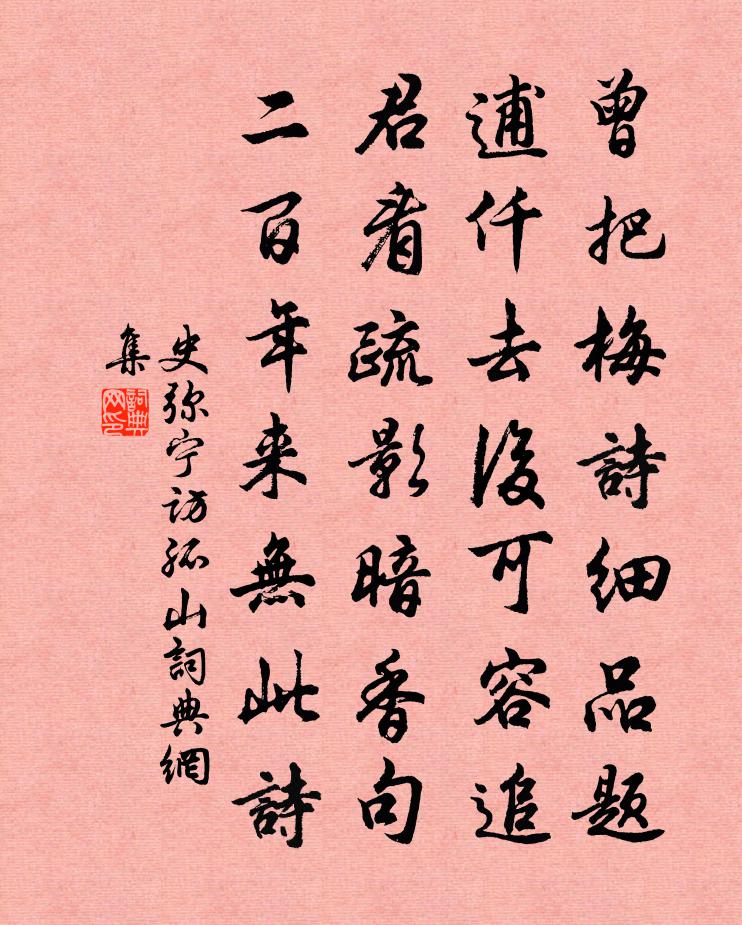 曾把梅詩細品題
逋仟去後可容追
君看疏影暗香句
二百年来無此詩
史弥宁访孤山詞典網
集
詞典網印